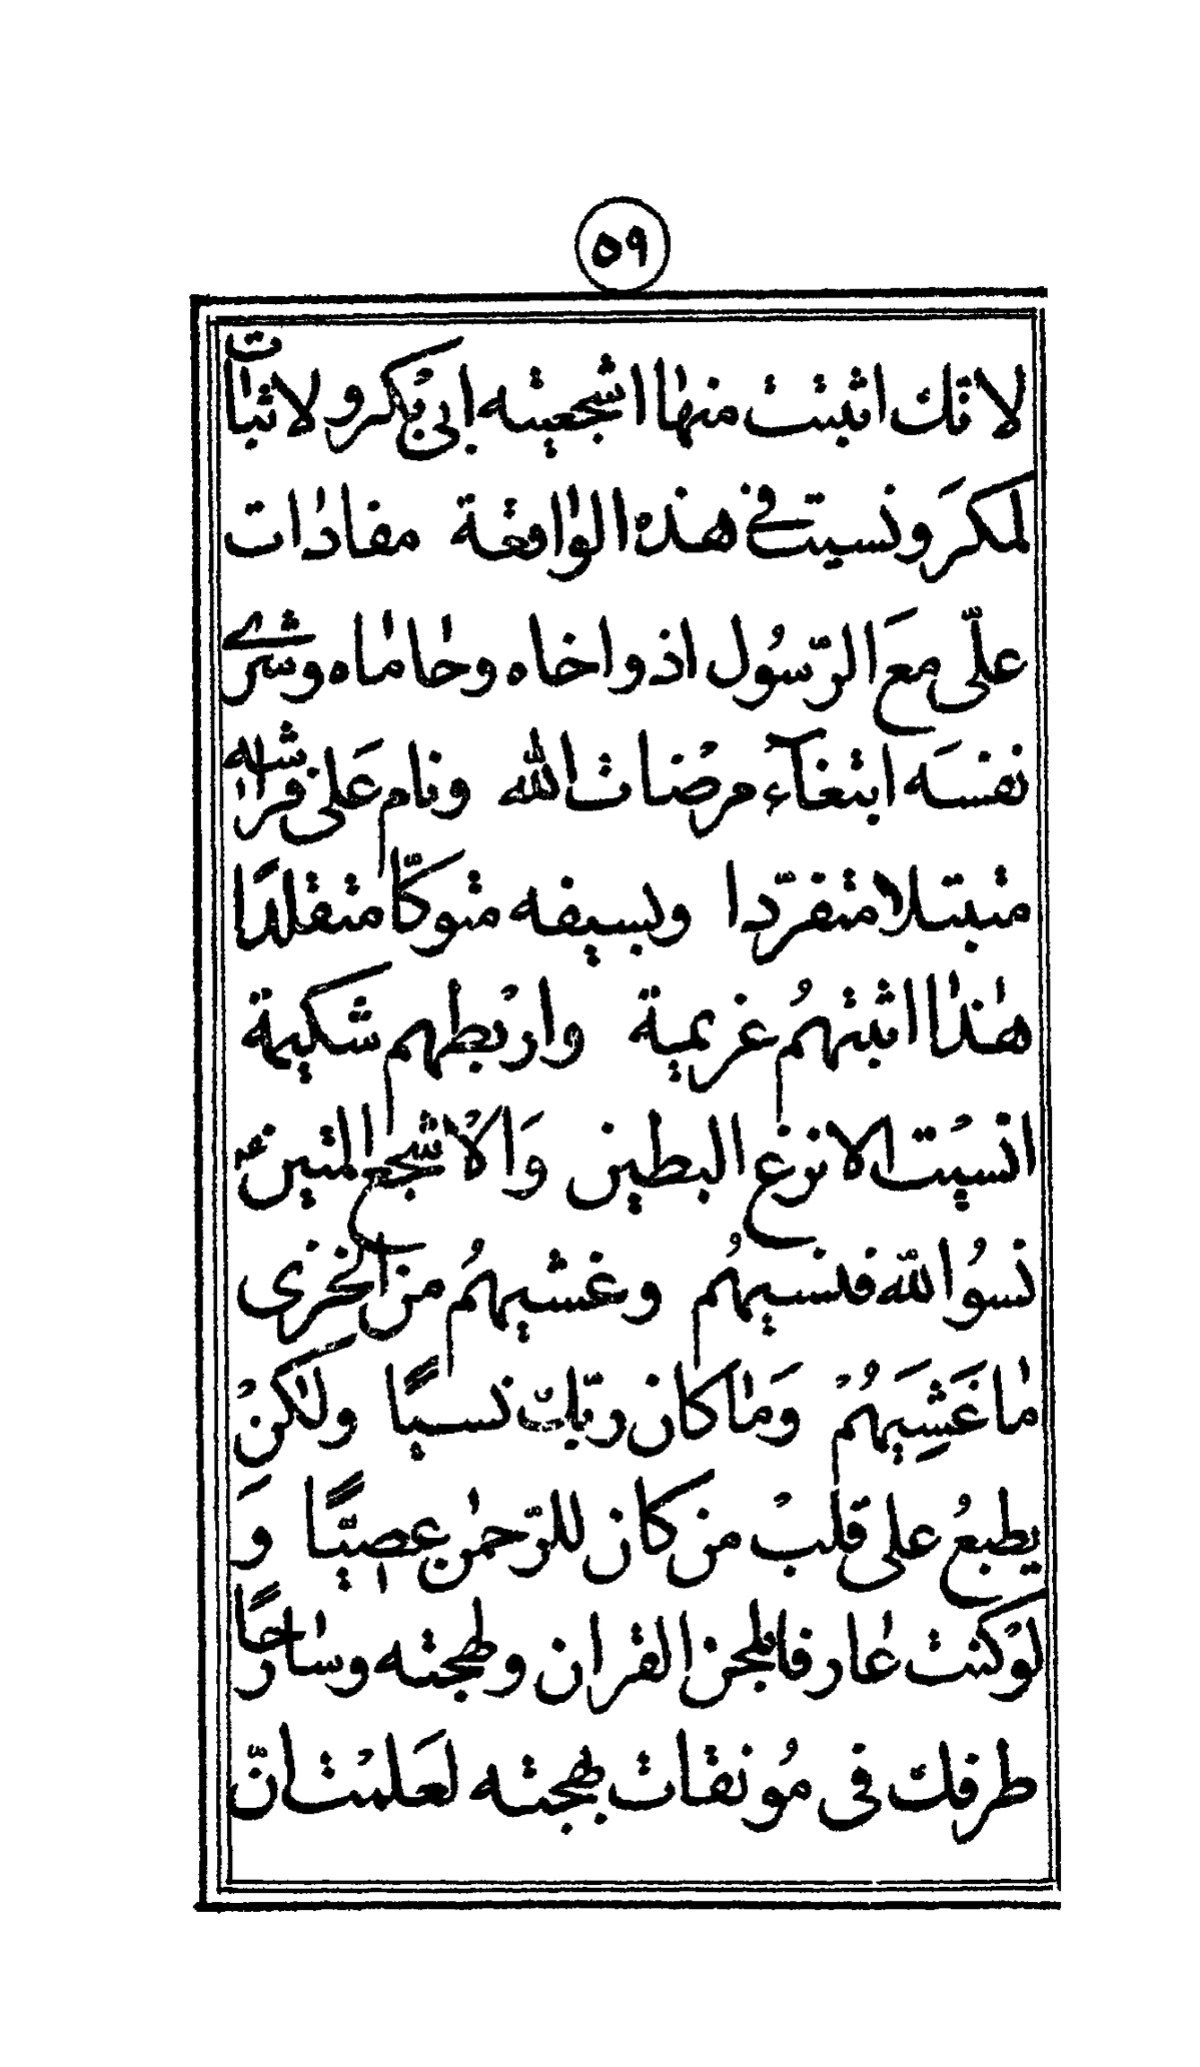 ٥٩
لانك اثبتت منها اشجعيته ابى بكر و لاثبات
لمكرَ و نسيت فى هذه الواقعة مفادات
علىّ معَ الرّسُول اذ واخاه وحاماه وشرى
نفسَه ابتغآء مرضات الله ونام عَلى فراشه
متبتلا متفرّدا وبسيفه متوكّا متقلدًا
هذا اثبتهمُ عزيمية واربطهم شكيمة
انسيت الانزع البطين وَالاشجع المتين عه
نسُوا الله فنسيهُم وغشيهمُ من الخزى
ما غَشِيَهُمْ وَما كان ربّكَ نسيًا ولكنْ
يطبعُ على قلبْ من كان للرّحمن عصيّا وَ
لوْ كنت عارفا بلحن القران ولهجته وسارحًا
طرفكَ فى مُونقات بهجته لعَلمْت انّ